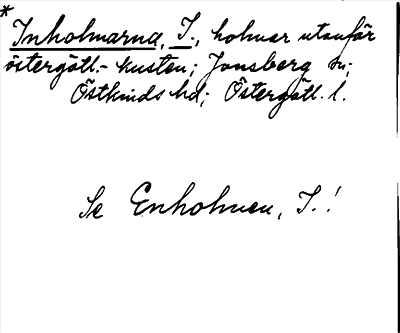 *
Inholmarna, I., holmar utanför
östergötl.- kusten; Jonsberg sn;
Östkinds hd; Östergötl. l.
Se Enholmen, I.!